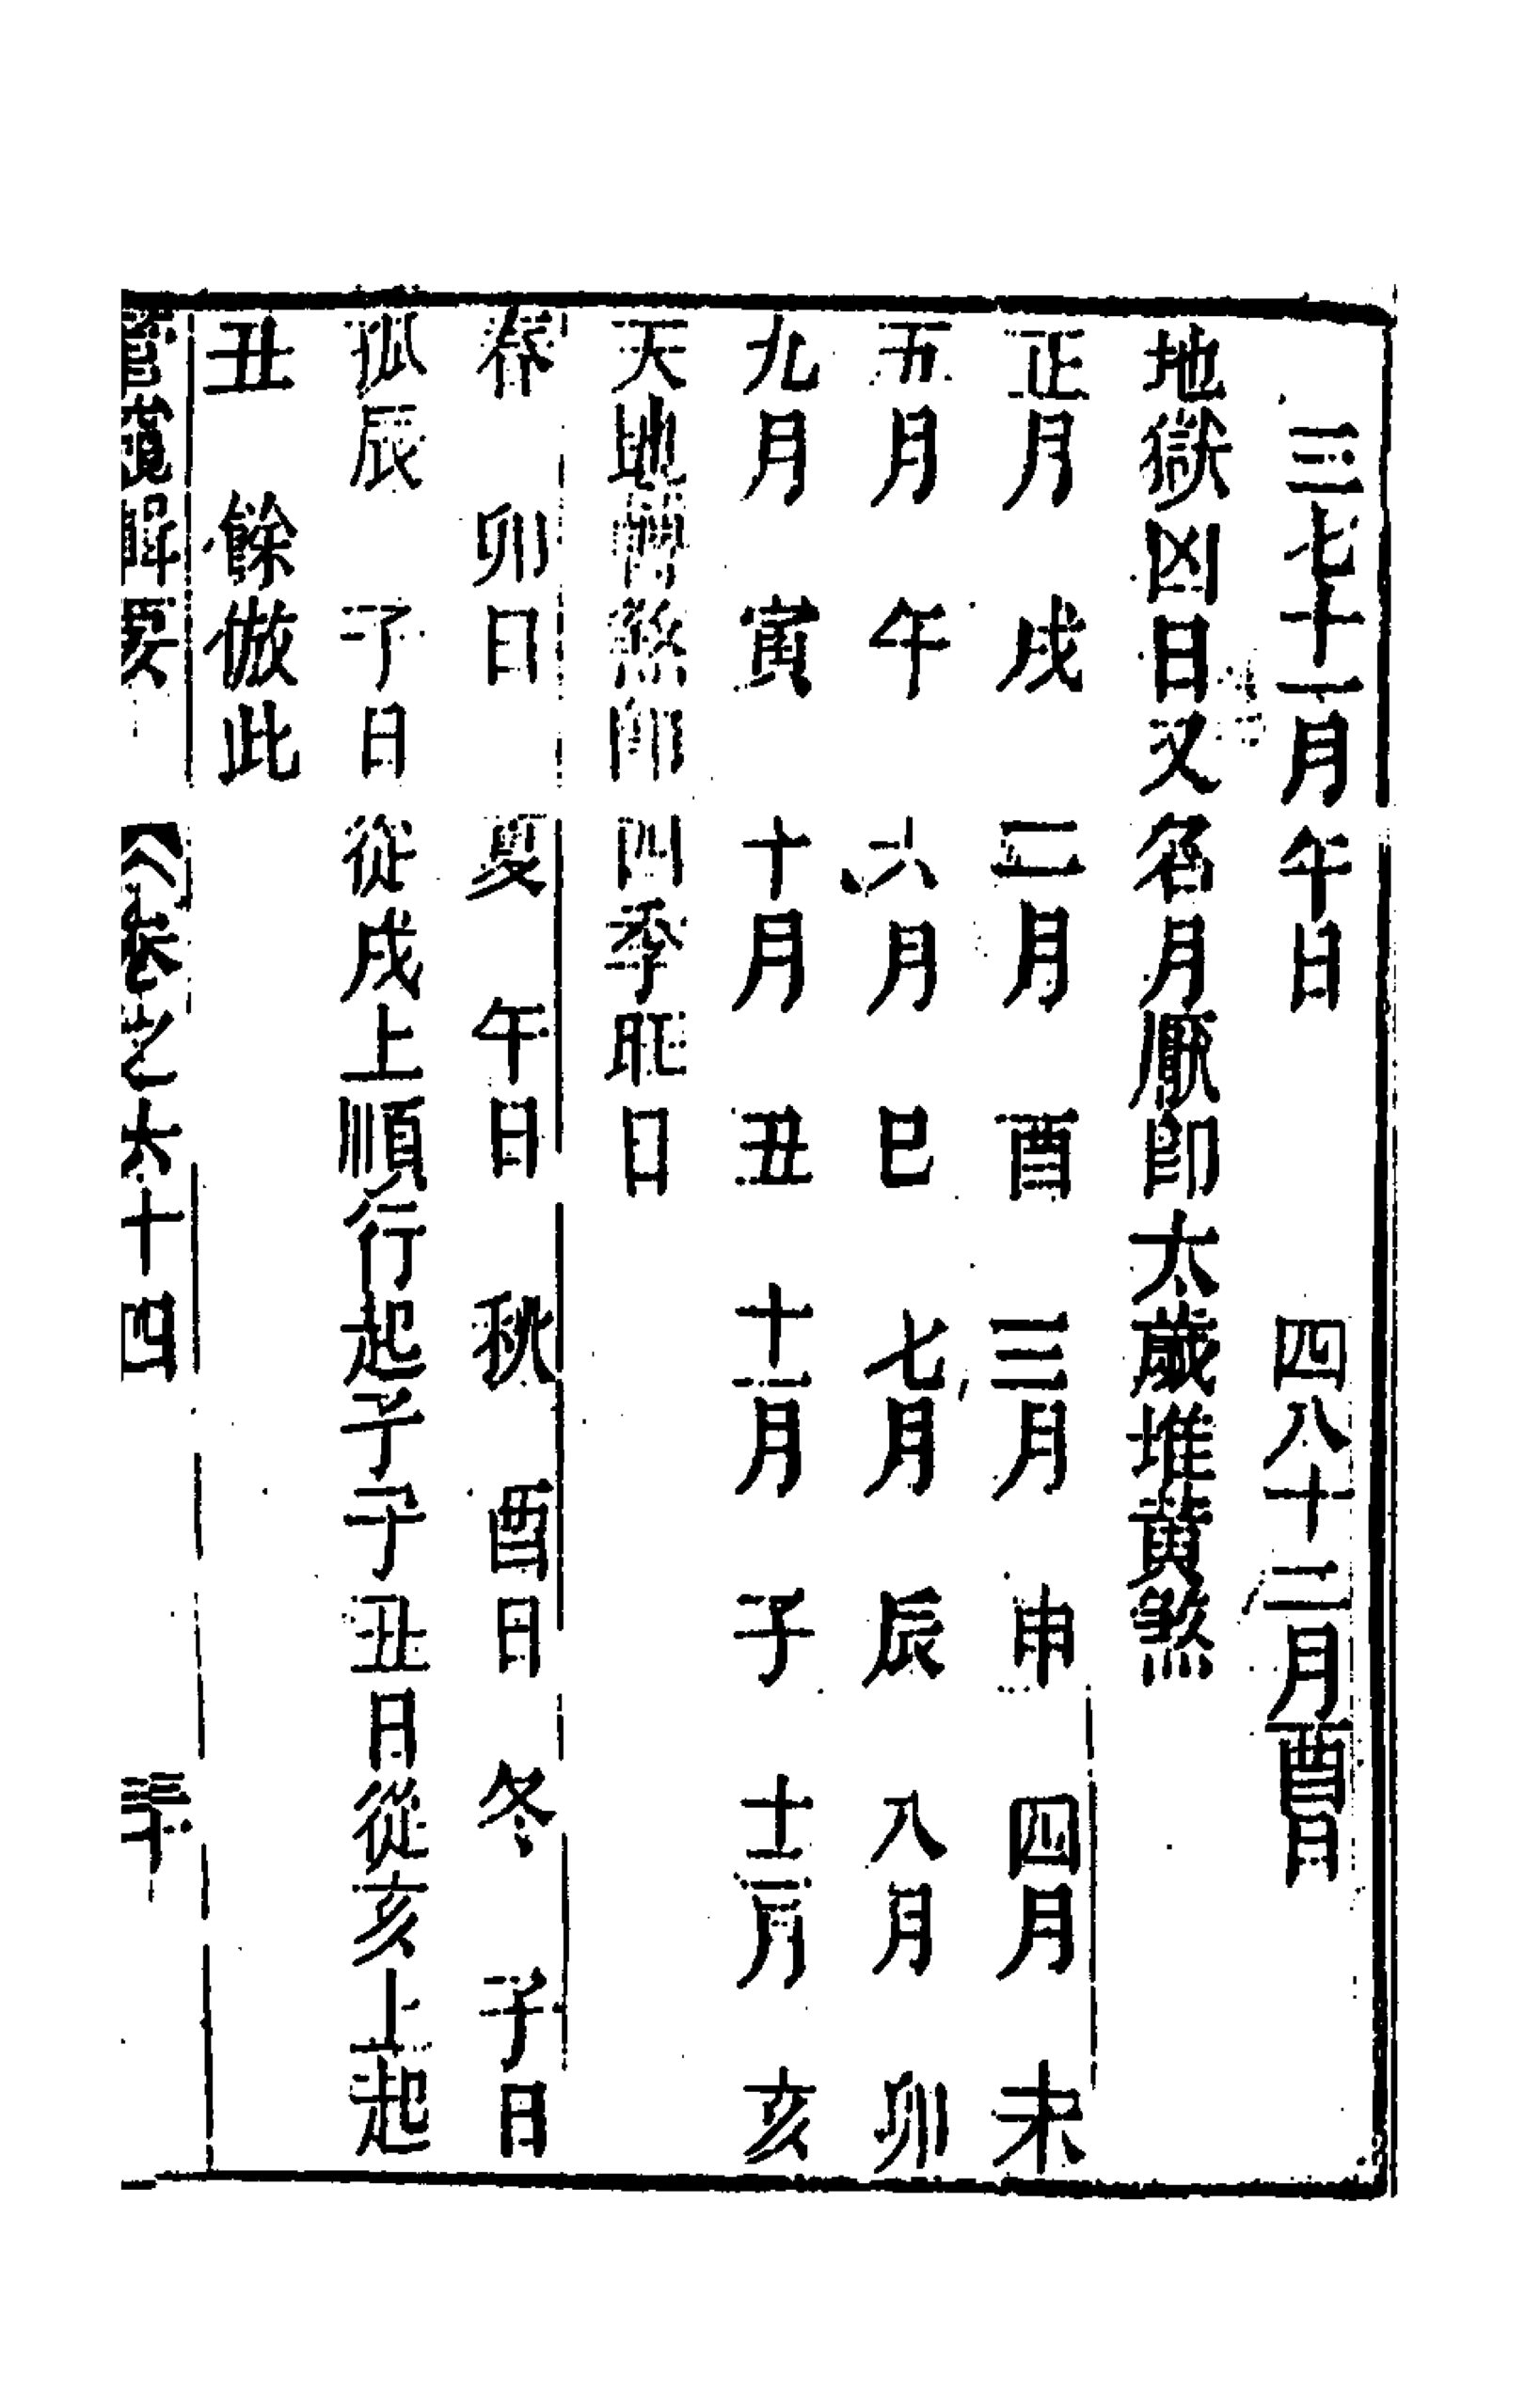 三七十一月午日　四八十二月酉日
地獄凶日又名月厭卽太歲堆黃煞
正月　戌　二月　酉　三月　申　四月　未
五月　午　六月　巳　七月　辰　八月　卯
九月　寅　十月　丑　十一月　子　十二月　亥
天地轉煞卽四季旺日
春　卯日　夏　午日　秋　酉日　冬　子日
孤辰　子日從戌上順行起子子丑日從亥上起
丑　餘倣此
管窺輯要　卷之六十四　三十